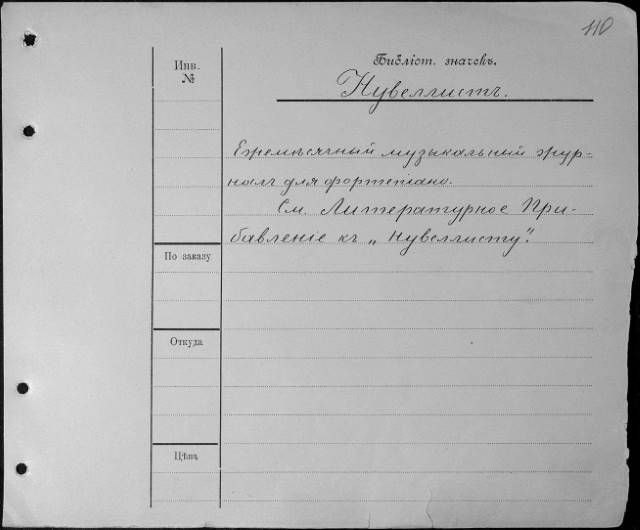 110
Инв.
№
Библіот. значекъ.
Нувеллистъ.
Ежемѣсячный музыкальный жур-
налъ для фортепіано.
См. Литературное При-
бавленіе къ „Нувеллисту".
По заказу
Откуда
Цѣна